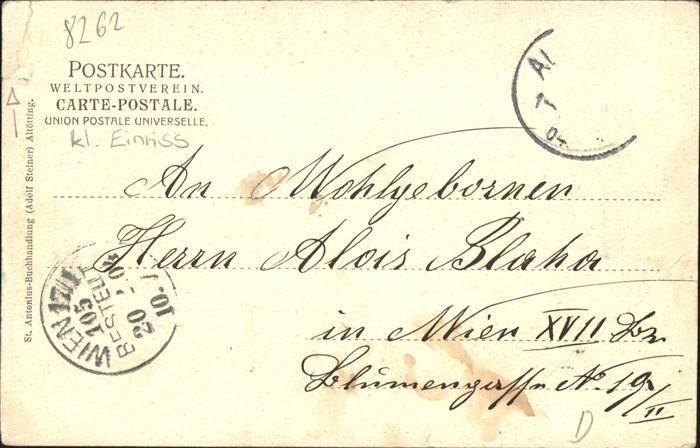 8262
POSTKARTE.
WELTPOSTVEREIN.
CARTE-POSTALE.
UNION POSTALE UNIVERSELLE.
kl. Einriss
St. Antonius-Buchhandlung (Adolf Steiner) Altötting.
Al
7
04
An Wohlgebornen
Herrn Alois Blaha
in Wien XVII Bz.
Blumengasse No. 19/II
WIEN 17/1
105
BESTELLT
20
10.7
04
D